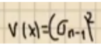 V(x)=(σₙ₋₁)²